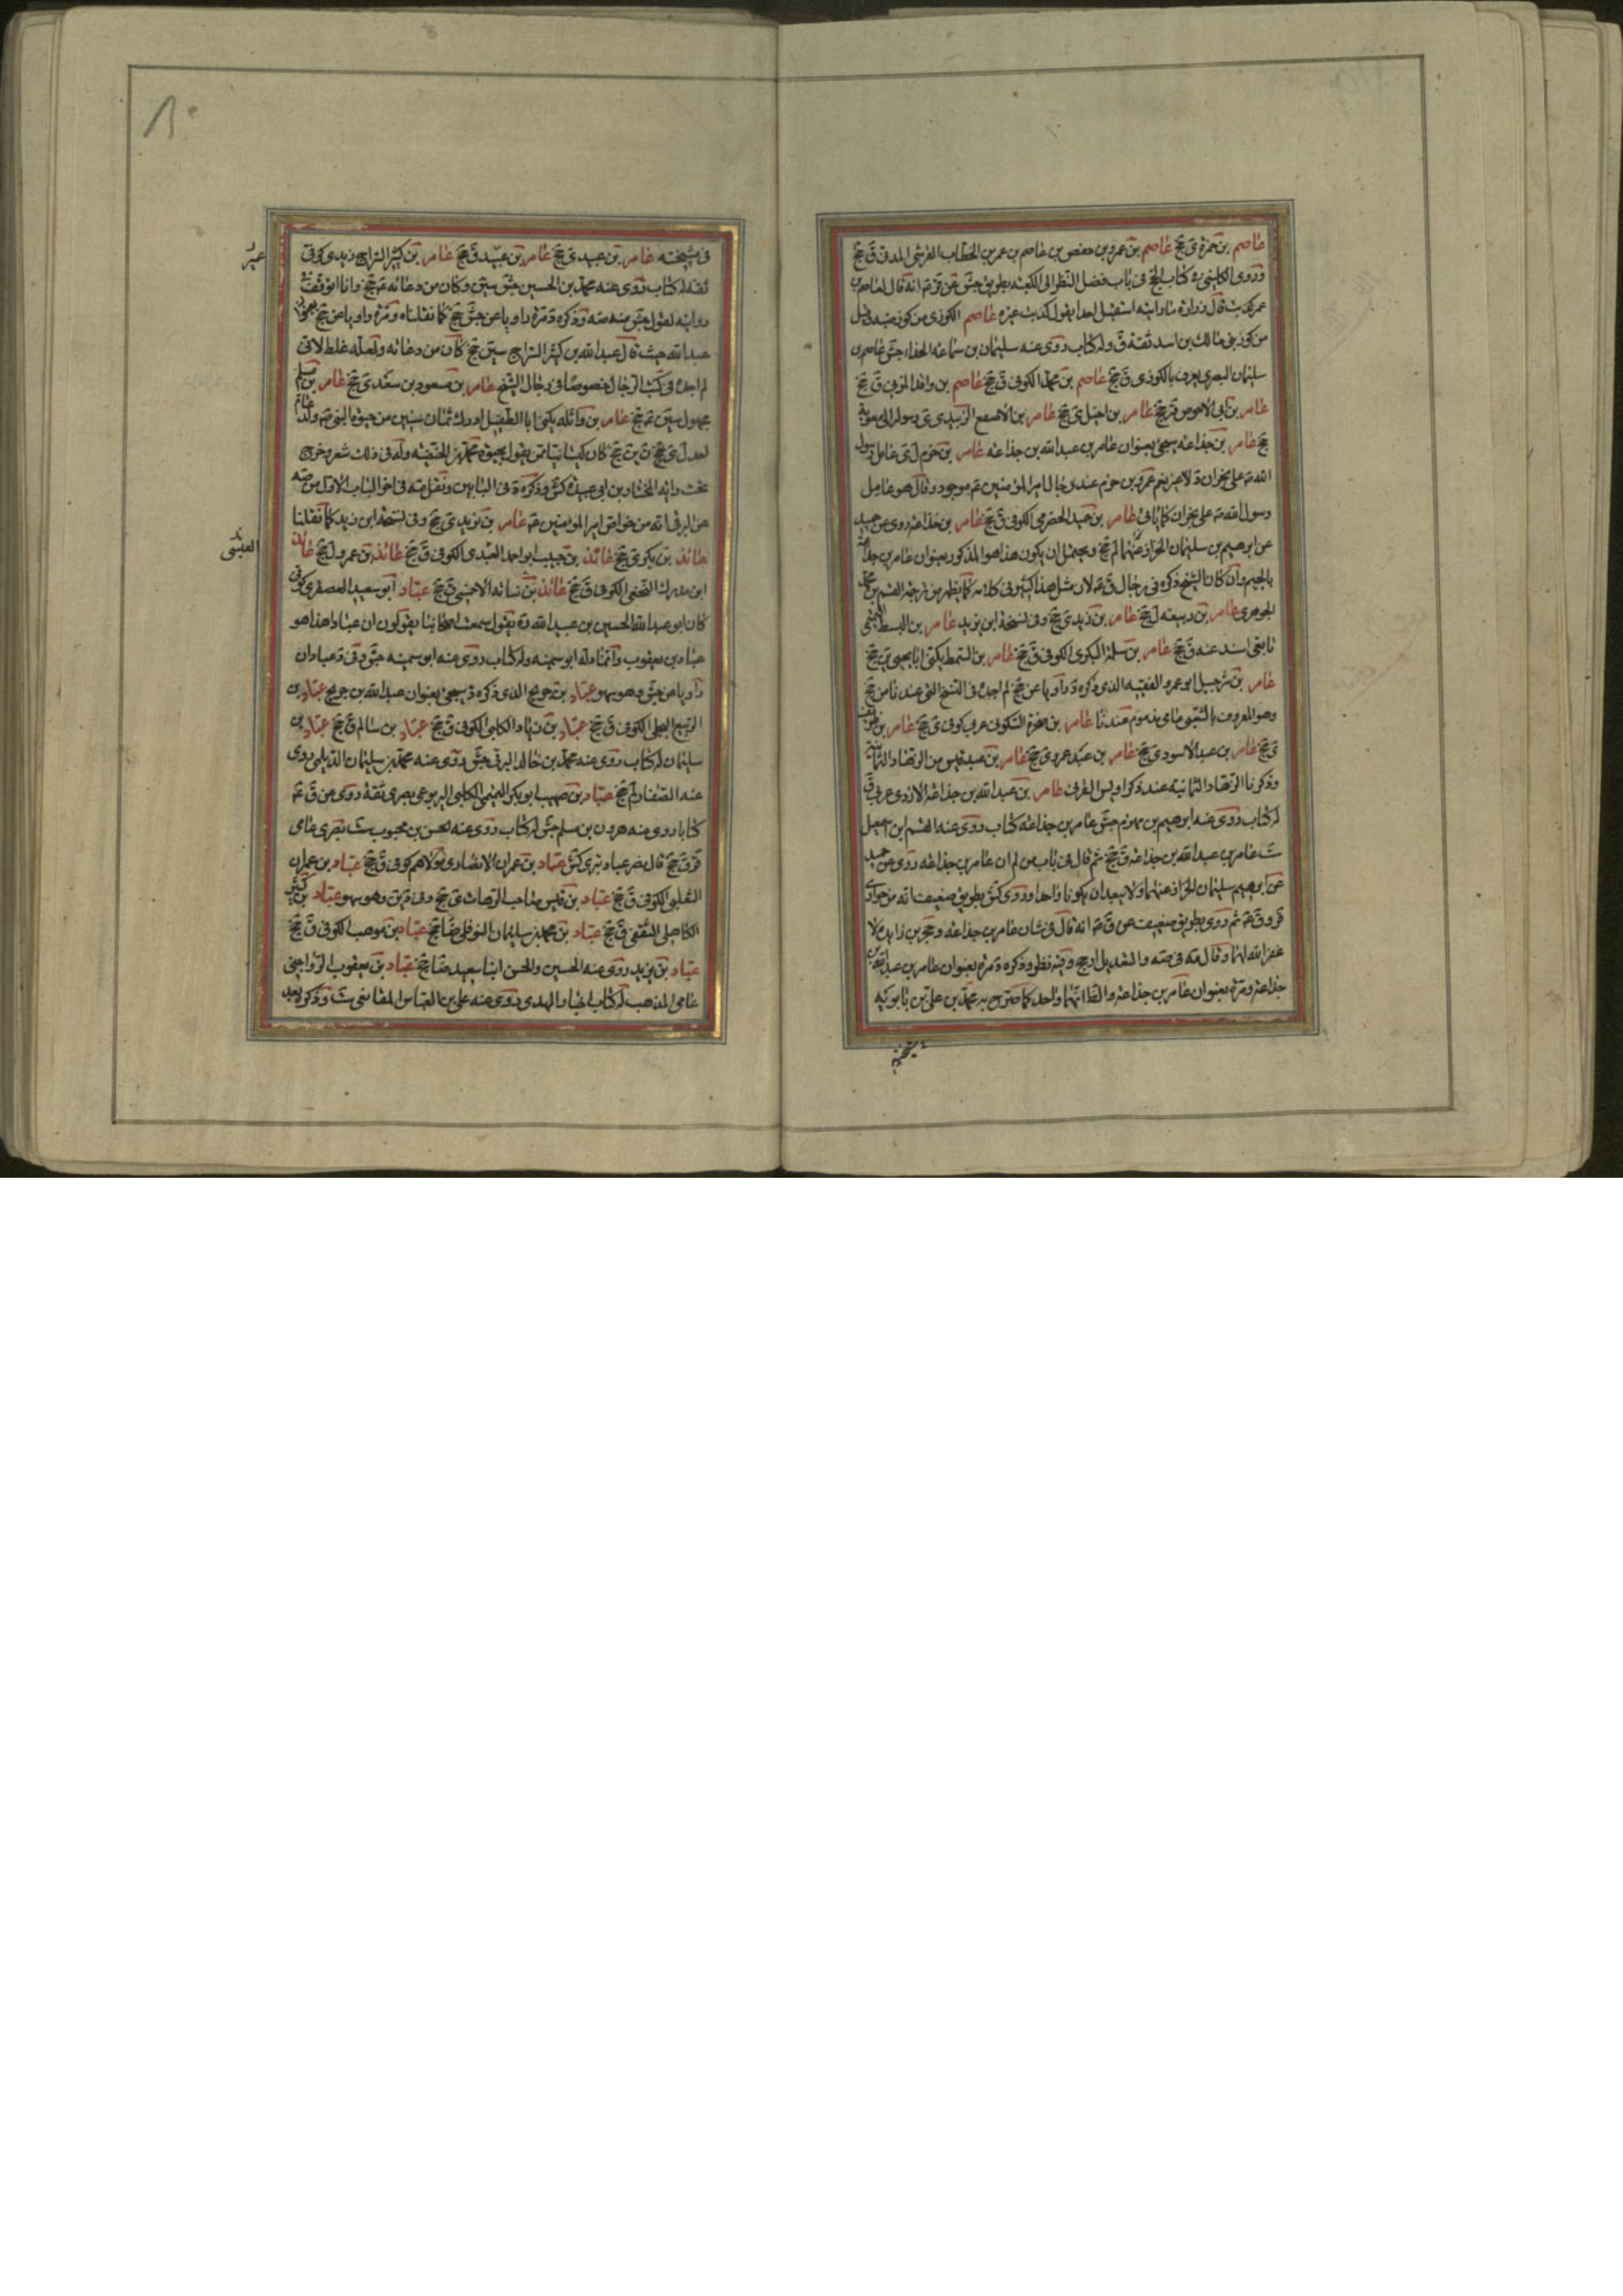 عاصم بن حمزة ى جخ عاصم بن عمرو بن حفص بن عاصم بن عمر بن الخطاب القرشى المدنى ق جخ
وروى الكلينى ره كتاب الحج فى باب فضل النظر الى الكعبة بطريق عن انه قال لعاصم بن
عمر كذبت قال زرارة ما رايته استقبل احدا بقول كذبت غيره عاصم الكوزى من كوز ضبه وقيل
من كوز بنى مالك بن اسد ثقة ق وله كتاب روى عنه سليمان بن سماعة الحذاء جش عاصم بن
سليمان البصرى يعرف بالكوزى ق جخ عاصم بن محمد الكوفى ق جخ عاصم بن واقد المزنى ق جخ
عامر بن ابى الاحوص قر جخ عامر بن احيل ى جخ عامر بن الاصقع الزبيدى ى رسوله الى معوية
جخ عامر بن جذاعة سيجئ بعنوان عامر بن عبد الله بن جذاعة عامر بن حزم ل ى عامل رسول
الله ص على نجران د لا عمرو بن حزم عند رجال امير المؤمنين ع موجود وقال هو عامل
رسول الله ص على نجران كما ياتى عامر بن حميد الحضرمى الكوفى ق جخ عامر بن خداعة روى عن حميد
عن ابرهيم بن سليمان الخزاز عنهما لم جخ ويحتمل ان يكون هذا هو المذكور بعنوان عامر بن جذاعة
بالجيم وان كان الشيخ ذكره فى رجال ق ع لان مثل هذا كثير فى كلامه كما يظهر من ترجمة القسم بن محمد
الجوهرى عامر بن ربيعة ل جخ عامر بن زيد ى جخ وفى نسخة ابن يزيد عامر بن البسط التميمى
تابعى اسند عنه ق جخ عامر بن سلمة البكرى الكوفى ق جخ عامر بن السمط يكنى ابا يحيى ين جخ
عامر بن شرحبيل ابو عمرو الفقيه الذى ذكره د راويا عن جخ لم اجده فى النسخ التى عندنا من جخ
وهو المعروف بالشعبى عامى مذموم عندنا عامر بن السكونى عربى كوفى ى جخ عامر بن طريف
ى جخ عامر بن عبد الاسود ى جخ عامر بن عبد عمرو ى جخ عامر بن عبد قيس من الزهاد الثمانية
وذكرنا الزهاد الثمانية عند ذكر اويس القرنى عامر بن عبد الله بن جذاعة الازدى عربى ق
له كتاب روى عنه ابرهيم بن مهزم جش عامر بن جذاعة كتاب روى عنه القسم ابن اسمعيل
ست عامر بن عبد الله بن جذاعة ق جخ ثم قال فى باب من لم ان عامر بن جذاعة روى عن حميد
عن ابرهيم سليمان الخزاز عنهما ولا يبعد ان يكونا واحدا وروى كش بطريق ضعيف انه من حوارى
قر و ق ع ثم روى بطريق ضعيف عن ق ع انه قال فى شان عامر بن جذاعة وحجر بن زايدة لا
غفر الله لهما وقال مه فى صه والتعديل ارجح وفيه نظر وذكره د مرة بعنوان عامر بن عبد الله بن
جذاعة ومرة بعنوان عامر بن جذاعة والظ انهما واحد كما صرح به محمد بن على بن بابويه
مشيخته
فى مشيخته عامر بن عبيد ى جخ عامر بن عبيد ق جخ عامر بن كثير السراج زيدى كوفى
ثقة له كتاب روى عنه محمد بن الحسين جش سين وكان من دعاته ع جخ وانا اتوقف
روايته لقول جش منه صه وذكره د مرة راويا عن جش جخ كما نقلناه ومرة راويا عن جخ بعنوان
عبد الله حيث قال عبد الله بن كثير السراج سين جخ كان من دعاته ولعله غلط لانى
لم اجده فى كتب الرجال خصوصا فى رجال الشيخ عامر بن مسعود بن سعد ى جخ عامر بن مسلم
مجهول سين ع جخ عامر بن واثلة يكنى ابا الطفيل ادرك ثمان سنين من حيوة النبى ص ولد عام
احد ل ى جخ ن ين جخ كان كيسانيا ممن يقول بحيوة محمد بن الحنفية وله فى ذلك شعر وخرج
تحت راية المختار بن ابى عبيدة كش وذكره د فى البابين ونقل مه فى اخر الباب الاول من صه
عن البرقى انه من خواص امير المؤمنين ع عامر بن يزيد ى جخ وفى نسخة ابن زيد كما نقلنا
عائذ بن بكر ى جخ عائذ بن حبيب ابو احمد العبدى الكوفى ق جخ عائذ بن عمرو ل جخ عائذ
ابن مدرك النخعى الكوفى ق جخ عائذ بن نباتة الاحمسى ق جخ عباد ابو سعيد العصفرى كوفى
كان ابو عبد الله الحسين بن عبيد الله ره يقول سمعت اصحابنا يقولون ان عبادا هذا هو
عباد بن يعقوب وانما دلسه ابو سمينة وله كتاب روى عنه ابو سمينة جش وفى د عبادان
راويا عن جش وهو سهو عباد بن جريح الذى ذكره د سيجئ بعنوان عبد الله بن جريح عباد بن
الربيع البجلى الكوفى ق جخ عباد بن زياد الكلبى الكوفى ق جخ عباد بن سالم ق جخ عباد بن
سليمان له كتاب روى عنه محمد بن خالد البرقى جش روى عنه محمد بن سليمان الديلمى روى
عنه الصفار لم جخ عباد بن صهيب ابو بكر التميمى الكلبى اليربوعى بصرى ثقة روى عن ق ع
كتابا روى عنه هرون بن مسلم جش له كتاب روى عنه الحسن بن محبوب ست بصرى عامى
قر ق جخ قال نصر عباد بترى كش عباد بن عمران الانصارى مولاهم كوفى ق جخ عباد بن عمران
التغلبى الكوفى ق جخ عباد بن قيس صاحب الترهات ى جخ وفى د ين وهو سهو عباد بن كثير
الكاهلى الثقفى ق جخ عباد بن محمد بن سليمان النوفلى ضا جخ عباد بن موهب الكوفى ق جخ
عباد بن يزيد روى عنه الحسين والحسن ابنا سعيد ضا جخ عباد بن يعقوب الرواجنى
عامى المذهب له كتاب اخبار المهدى روى عنه على بن العباس المقانعى ست وذكره بعد
العبسى